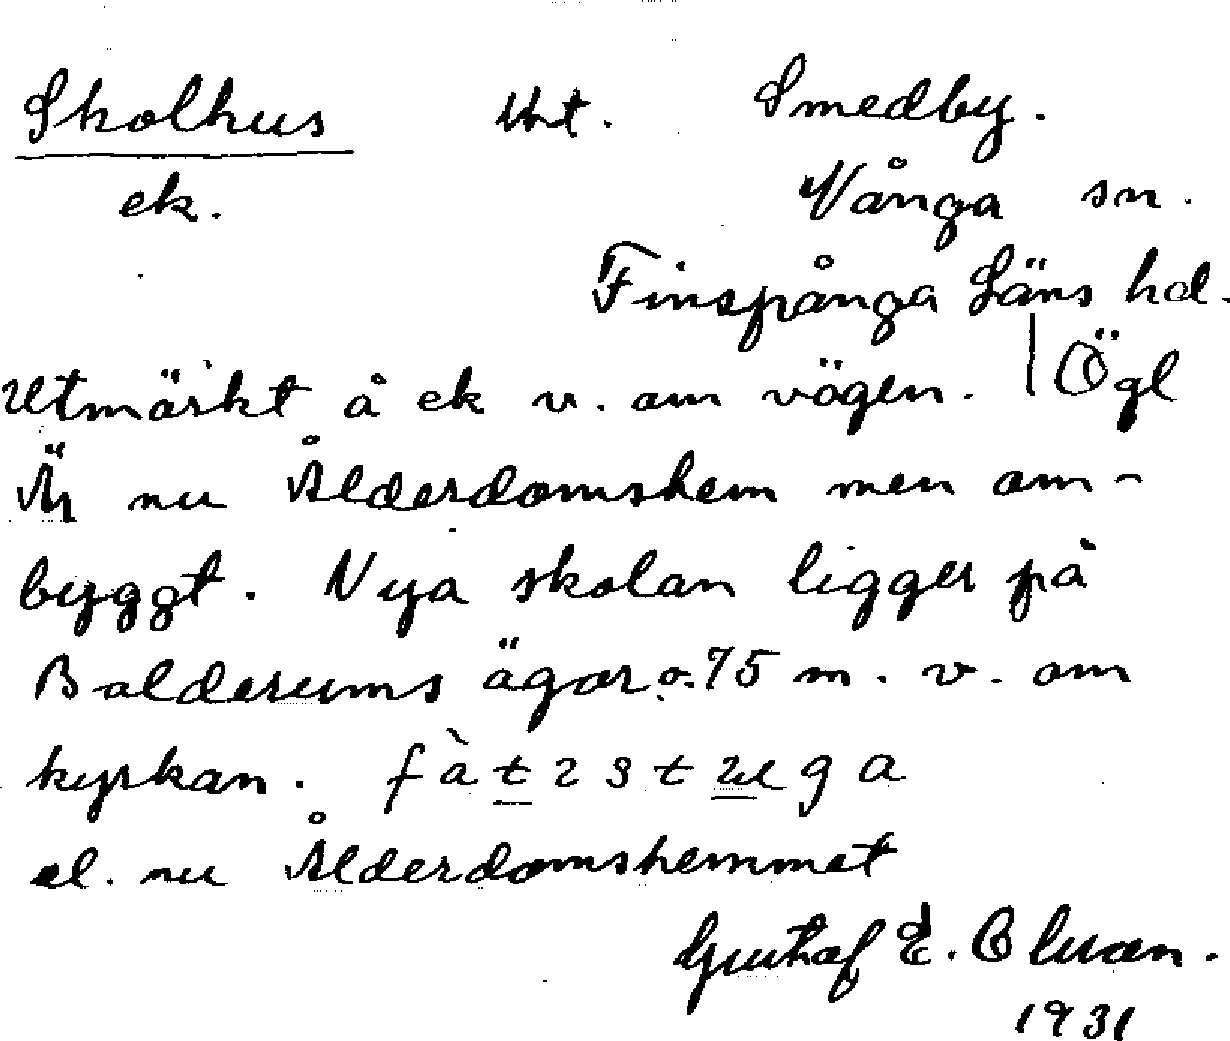 Skolhus Unt. Smedby.
ek. Vånga sn.
Finspånga Läns hd.
Utmärkt å ek v. om vägen. | Ögl
Är nu Ålderdomshem men om-
byggt. Nya skolan ligger på
Balderums ägor c:a 75 m. v. om
kyrkan.
el. nu Ålderdomshemmet
Gustaf E. Olson.
1931